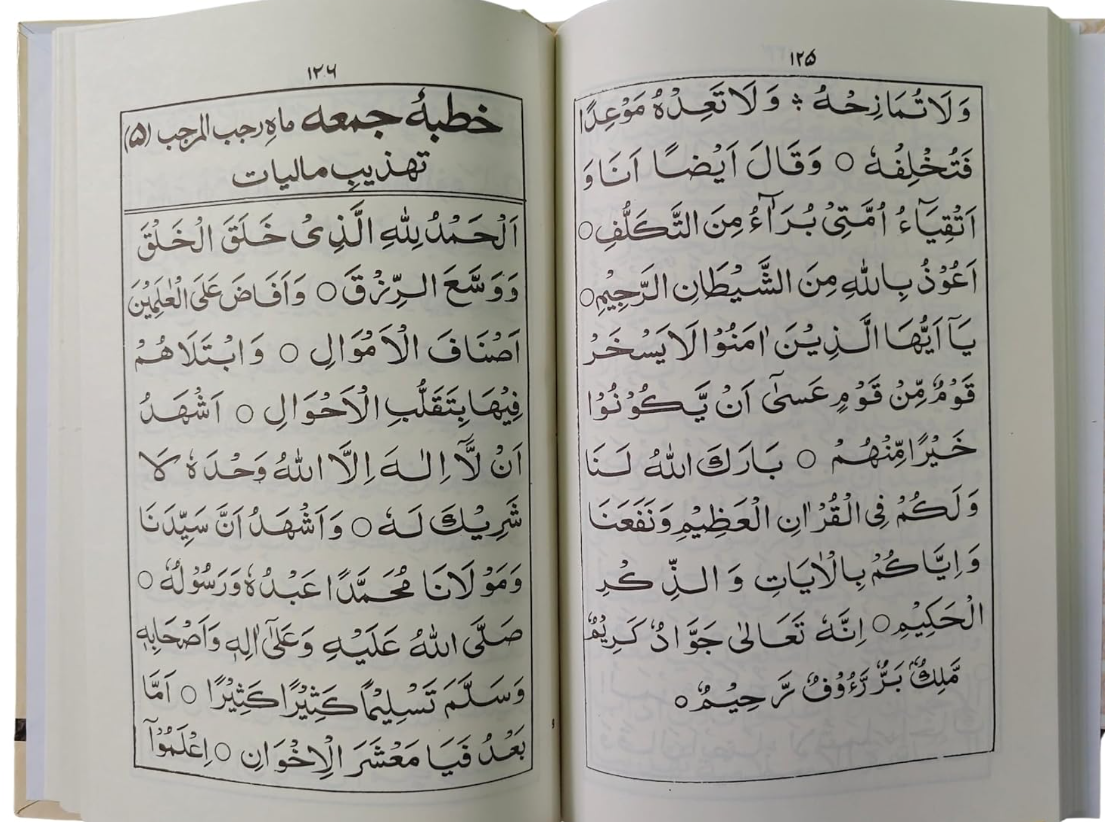 ۱۲۵
وَلَا تُمَازِحْهُ ؞ وَلَا تَعِدْهُ مَوْعِدًا
فَتُخْلِفُهٗ ○ وَقَالَ اَيْضًا اَنَا وَ
اَتْقِيَآءُ اُمَّتِىْ بُرَآءُ مِنَ التَّكَلُّفِ ○
اَعُوْذُ بِاللّٰهِ مِنَ الشَّيْطَانِ الرَّجِيْمِ ○
يَآ اَيُّهَا الَّذِيْنَ اٰمَنُوْا لَا يَسْخَرْ
قَوْمٌ مِّنْ قَوْمٍ عَسٰٓى اَنْ يَّكُوْنُوْا
خَيْرًا مِّنْهُمْ ○ بَارَكَ اللّٰهُ لَنَا
وَلَكُمْ فِى الْقُرْاٰنِ الْعَظِيْمِ وَنَفَعَنَا
وَاِيَّاكُمْ بِالْاٰيَاتِ وَالذِّكْرِ
الْحَكِيْمِ ○ اِنَّهٗ تَعَالٰى جَوَّادٌ كَرِيْمٌ
مَّلِكٌ بَرٌّ رَّءُوْفٌ رَّحِيْمٌ ○
۱۲۶
خطبۂ جمعہ ماہِ رجب المرجب (۵)
تہذیبِ مالیات
اَلْحَمْدُ لِلّٰهِ الَّذِىْ خَلَقَ الْخَلْقَ
وَوَسَّعَ الرِّزْقَ ○ وَاَفَاضَ عَلَى الْعٰلَمِيْنَ
اَصْنَافَ الْاَمْوَالِ ○ وَابْتَلَاهُمْ
فِيْهَا بِتَقَلُّبِ الْاَحْوَالِ ○ اَشْهَدُ
اَنْ لَّآ اِلٰهَ اِلَّا اللّٰهُ وَحْدَهٗ لَا
شَرِيْكَ لَهٗ ○ وَاَشْهَدُ اَنَّ سَيِّدَنَا
وَمَوْلَانَا مُحَمَّدًا عَبْدُهٗ وَرَسُوْلُهٗ ○
صَلَّى اللّٰهُ عَلَيْهِ وَعَلٰى اٰلِهٖ وَاَصْحَابِهٖ
وَسَلَّمَ تَسْلِيْمًا كَثِيْرًا كَثِيْرًا ○ اَمَّا
بَعْدُ فَيَا مَعْشَرَ الْاِخْوَانِ ○ اِعْلَمُوْآ